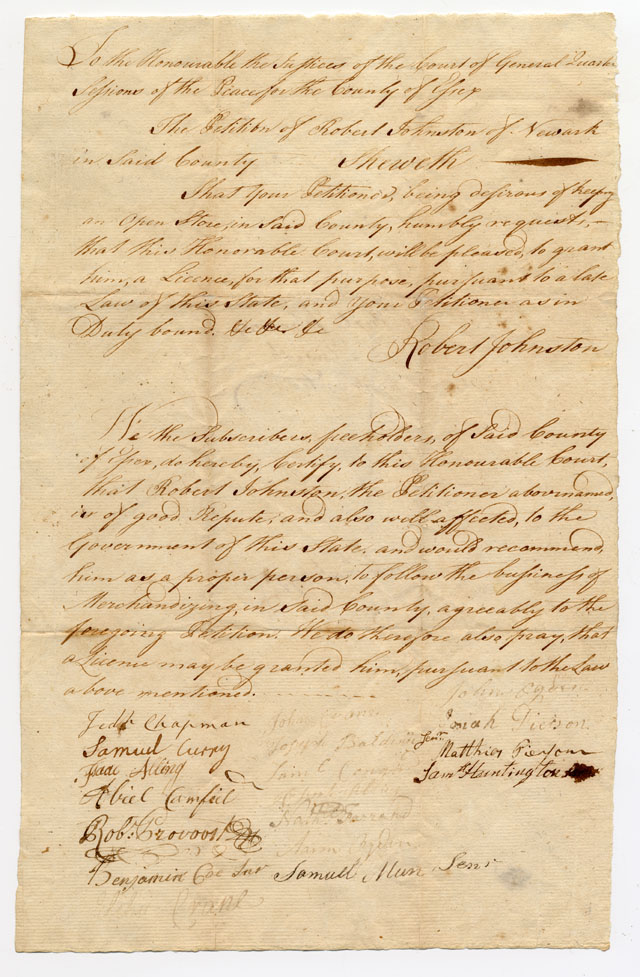 To the Honourable the Justices of the Court of General Quarter
Sessions of the Peace for the County of Essex
The Petition of Robert Johnston of Newark
in Said County Sheweth
That Your Petitioner, being desirous of keeping
an Open Store, in Said County, humbly requests,
that this Honorable Court, will be pleased, to grant
him, a Licence, for that purpose, pursuant to a late
Law of this State, and Your Petitioner as in
Duty bound. &c &c &c
Robert Johnston
We the Subscribers, freeholders, of Said County
of Essex, do hereby, Certify, to this Honourable Court,
that Robert Johnston, the Petitioner abovenamed,
is of good Repute, and also well affected, to the
Government of this State, and would recommend,
him as a proper person, to follow the business of
Merchandizing, in Said County, agreeably to the
foregoing Petition. We do therefore also, pray, that
a Licence may be granted him, pursuant to the Law
above mentioned.
John Ogden
Jedh. Chapman
Josiah Pierson
Samuel Curry
Joseph Baldwin
Senr. Matthias Pierson
Isaac Alling
Saml. Huntington
Abiel Camfield
Robt. Provoost
Benjamin Coe Jur
Samuell Mun Senr